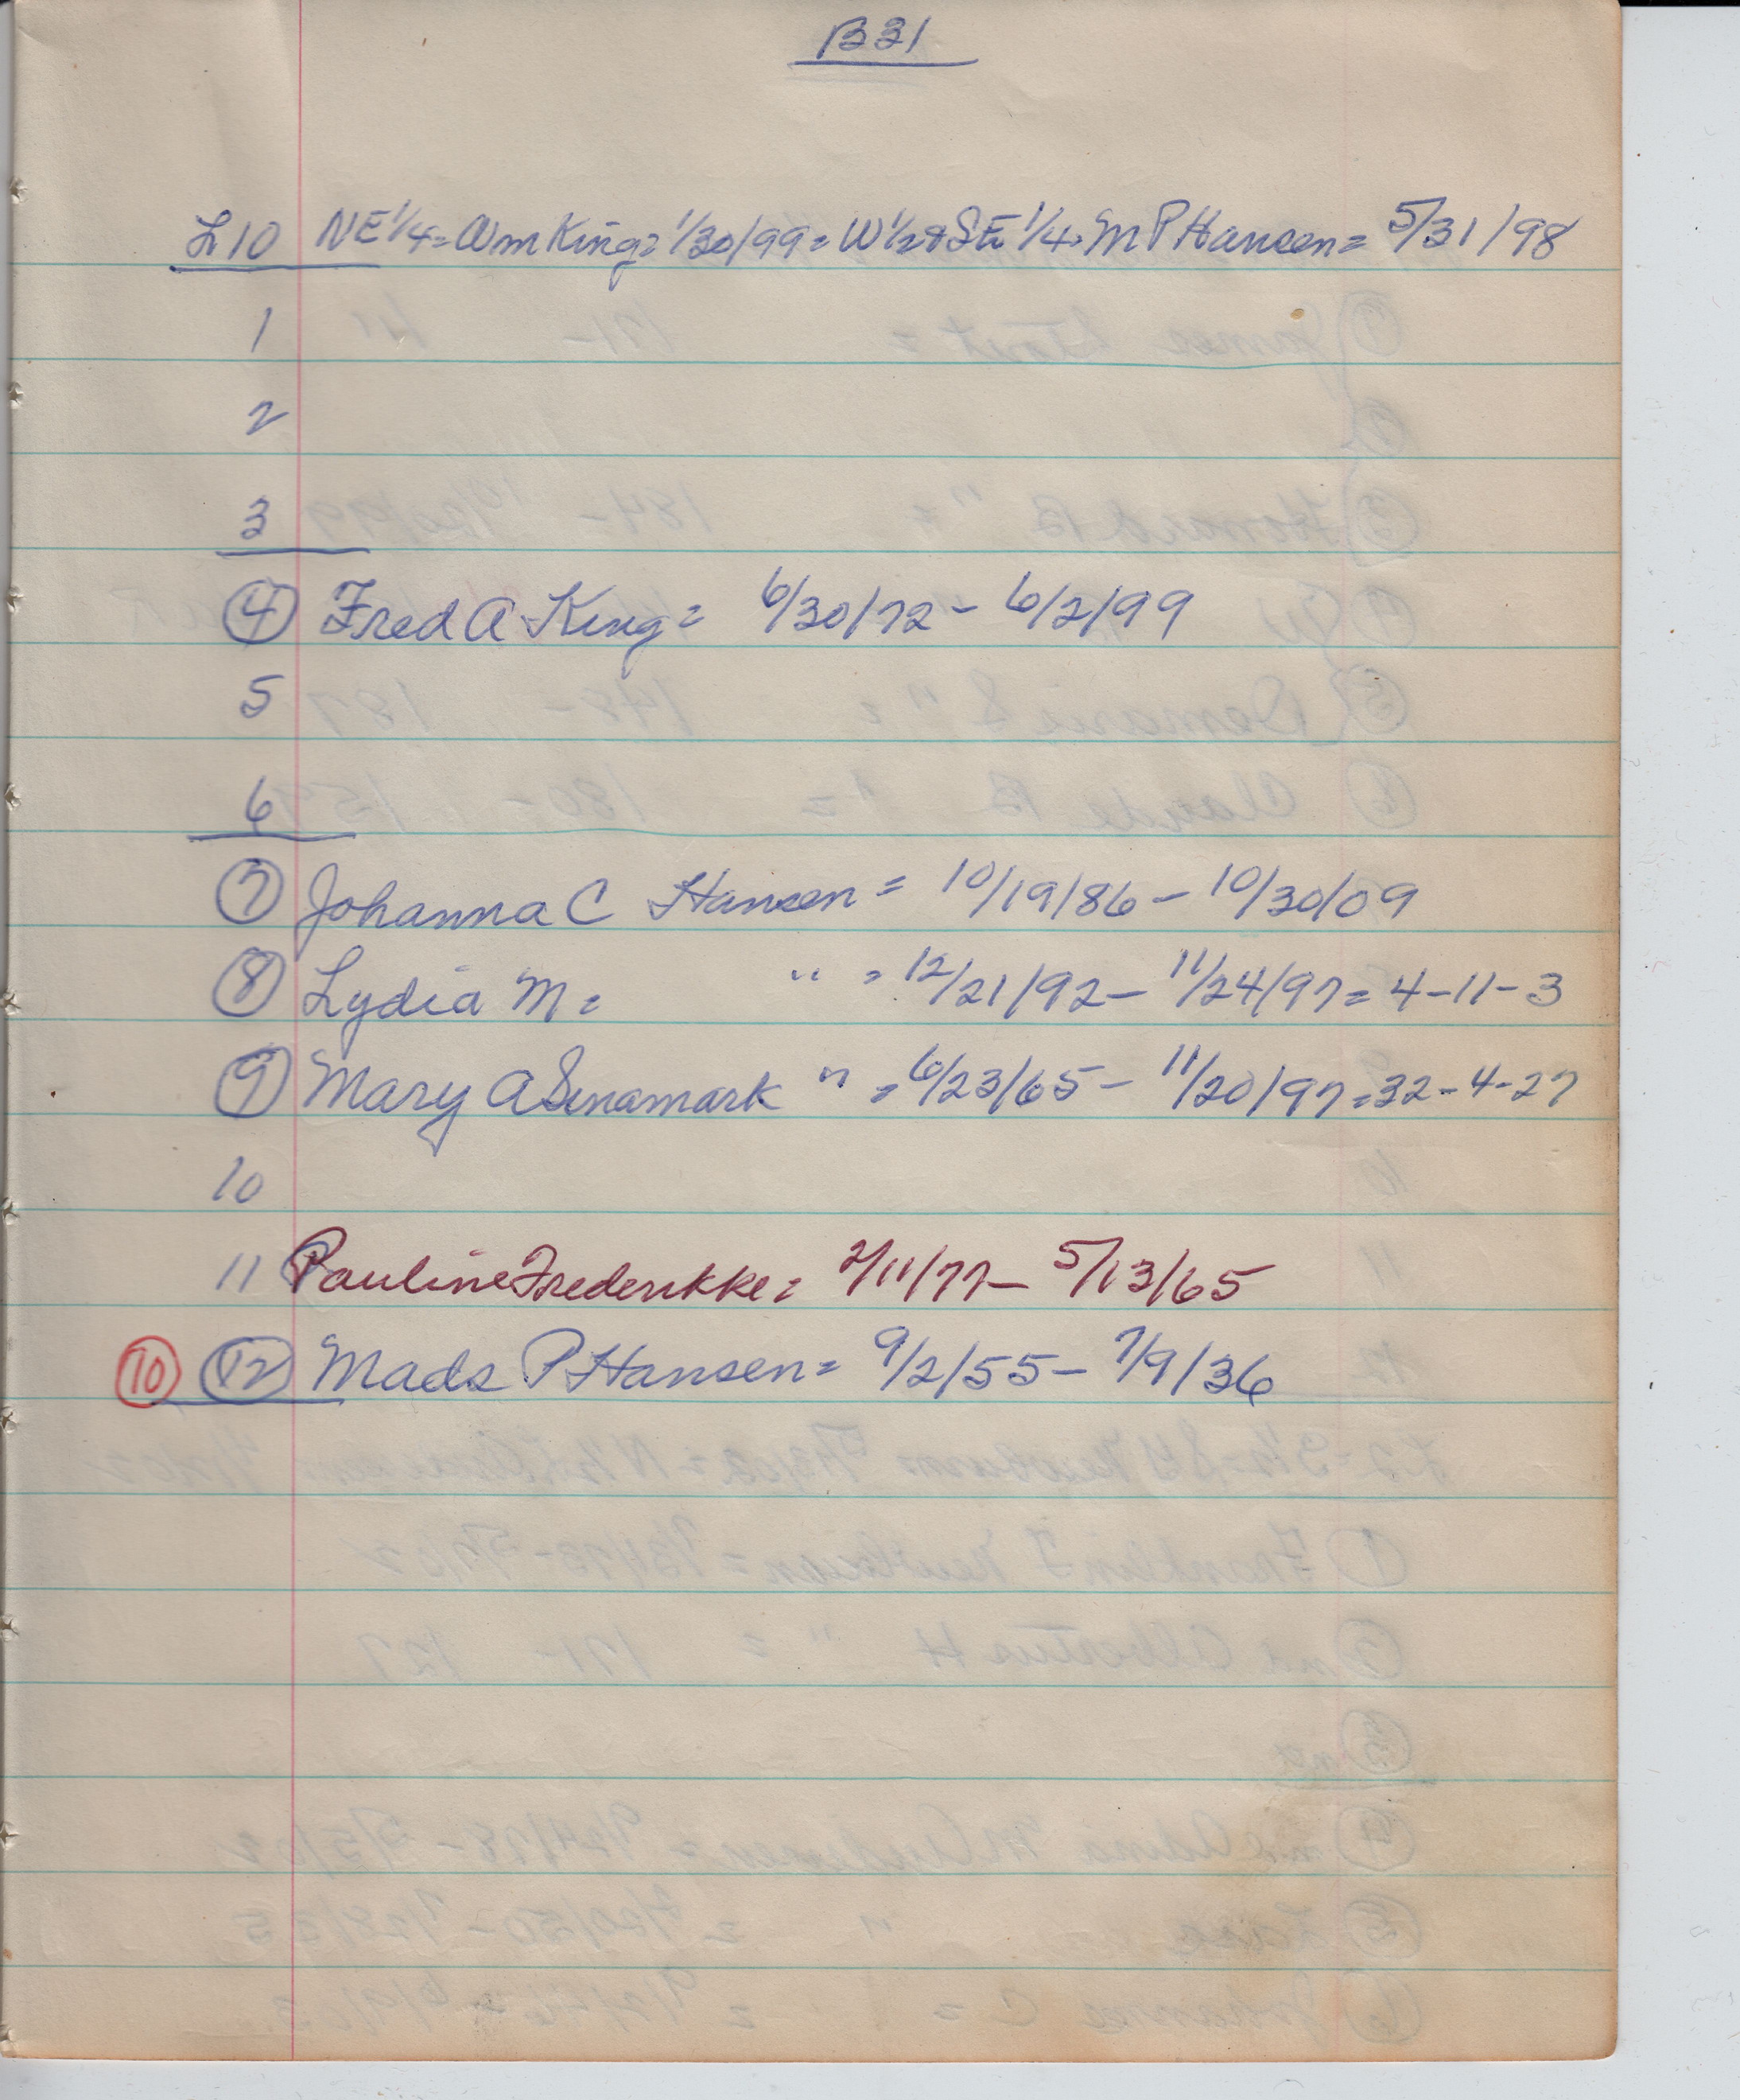 B31
L10 NE 1/4 = Wm King = 1/30/99 = W 1/2 & SE 1/4 = M P Hansen = 5/31/98
1
2
3
4 Fred A King = 6/30/72 - 6/2/99
5
6
7 Johanna C Hansen = 10/19/86 - 10/30/09
8 Lydia M = " = 12/21/92 - 11/24/97 = 4-11-3
9 Mary A Senamark " = 6/23/65 - 11/20/97 = 32-4-27
10
11 Pauline Frederikke = 2/11/77 - 5/13/65
10 12 Mads P Hansen = 9/2/55 - 7/9/36